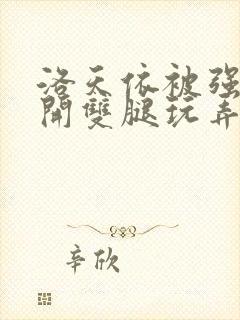 洛天依被强
開雙腿玩弄
辛欣